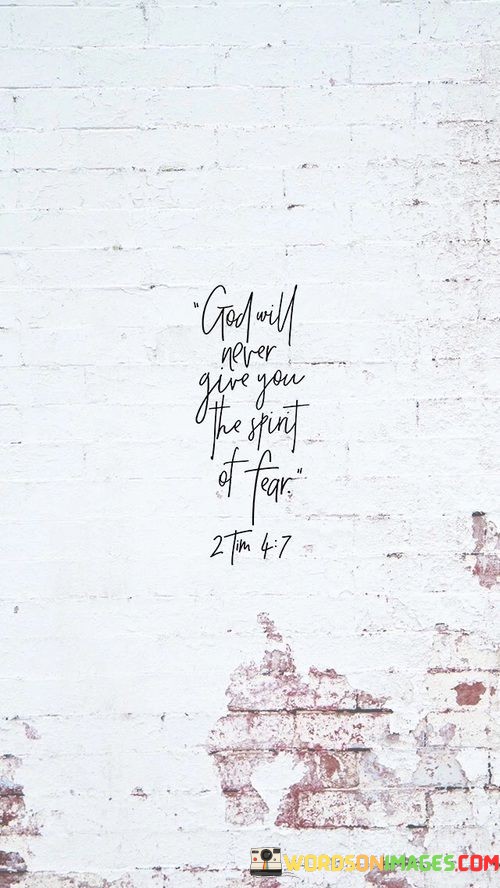 "God will
never
give you
the spirit
of fear."
2 Tim 4:7
WORDSONIMAGES.COM